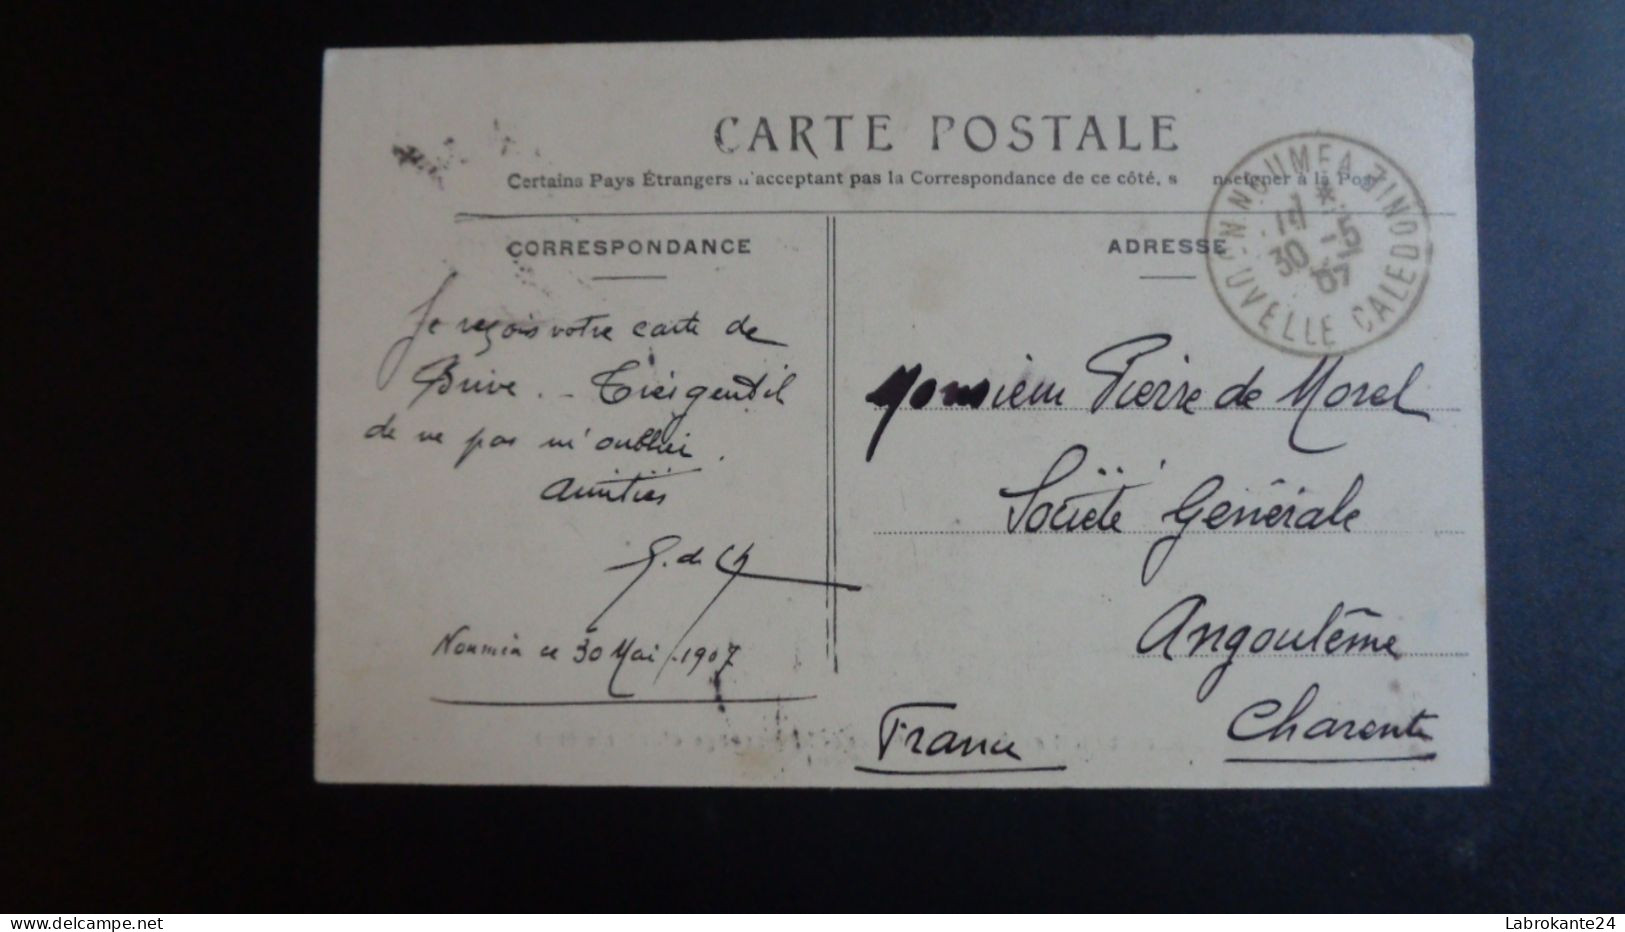 CARTE POSTALE
Certains Pays Étrangers n'acceptant pas la Correspondance de ce côté, s nseigner à la Post
CORRESPONDANCE
Je reçois votre carte de
Brive. - Très gentil
de ne pas m'oublier.
Amitiés
G. de Ch
Nouméa ce 30 Mai 1907
ADRESSE
NOUMEA
14
30 -5
07
NOUVELLE CALEDONIE
Monsieur Pierre de Morel
Société Générale
Angoulême
Charente
France
delcampe.net
Labrokante24